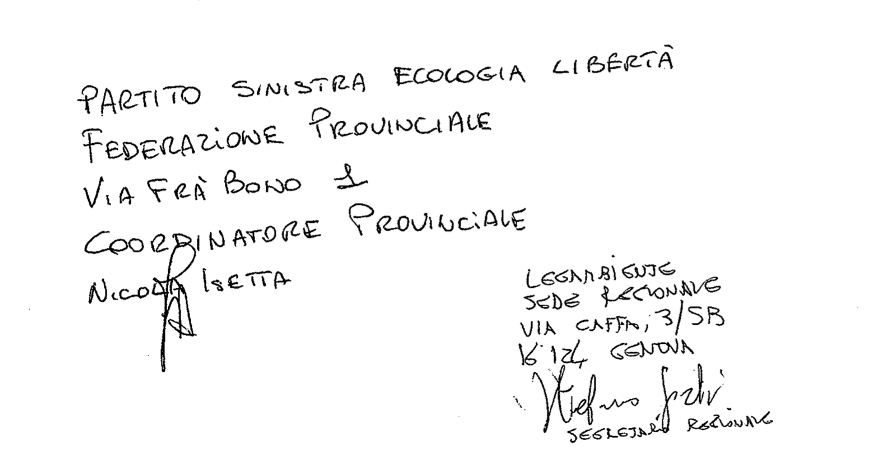 PARTITO SINISTRA ECOLOGIA LIBERTÀ
FEDERAZIONE PROVINCIALE
VIA FRÀ BONO 1
COORDINATORE PROVINCIALE
NICOLA ISETTA
LEGAMBIENTE
SEDE REGIONALE
VIA CAFFA, 3/5B
16124 GENOVA
Stefano
SEGRETARIO REGIONALE